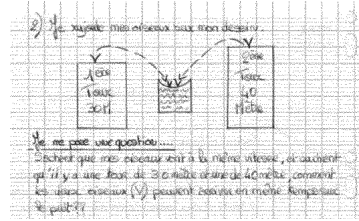 2) Je rajoute mes oiseaux sur mon dessin.
1ère
Tour
30 M
2ème
Tour
40
Mètre
Je me pose une question....
Sachant que mes oiseaux vont à la même vitesse, et
qu'il y a une tour de 30 mètre et une de 40 mètre, comment
les deux oiseaux (V) peuvent arriver en même temps sur
le puit ??